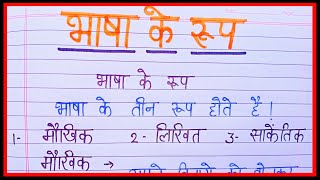 भाषा के रूप
भाषा के रूप
भाषा के तीन रूप होते है।
1- मौखिक 2- लिखित 3- सांकेतिक
मौखिक →